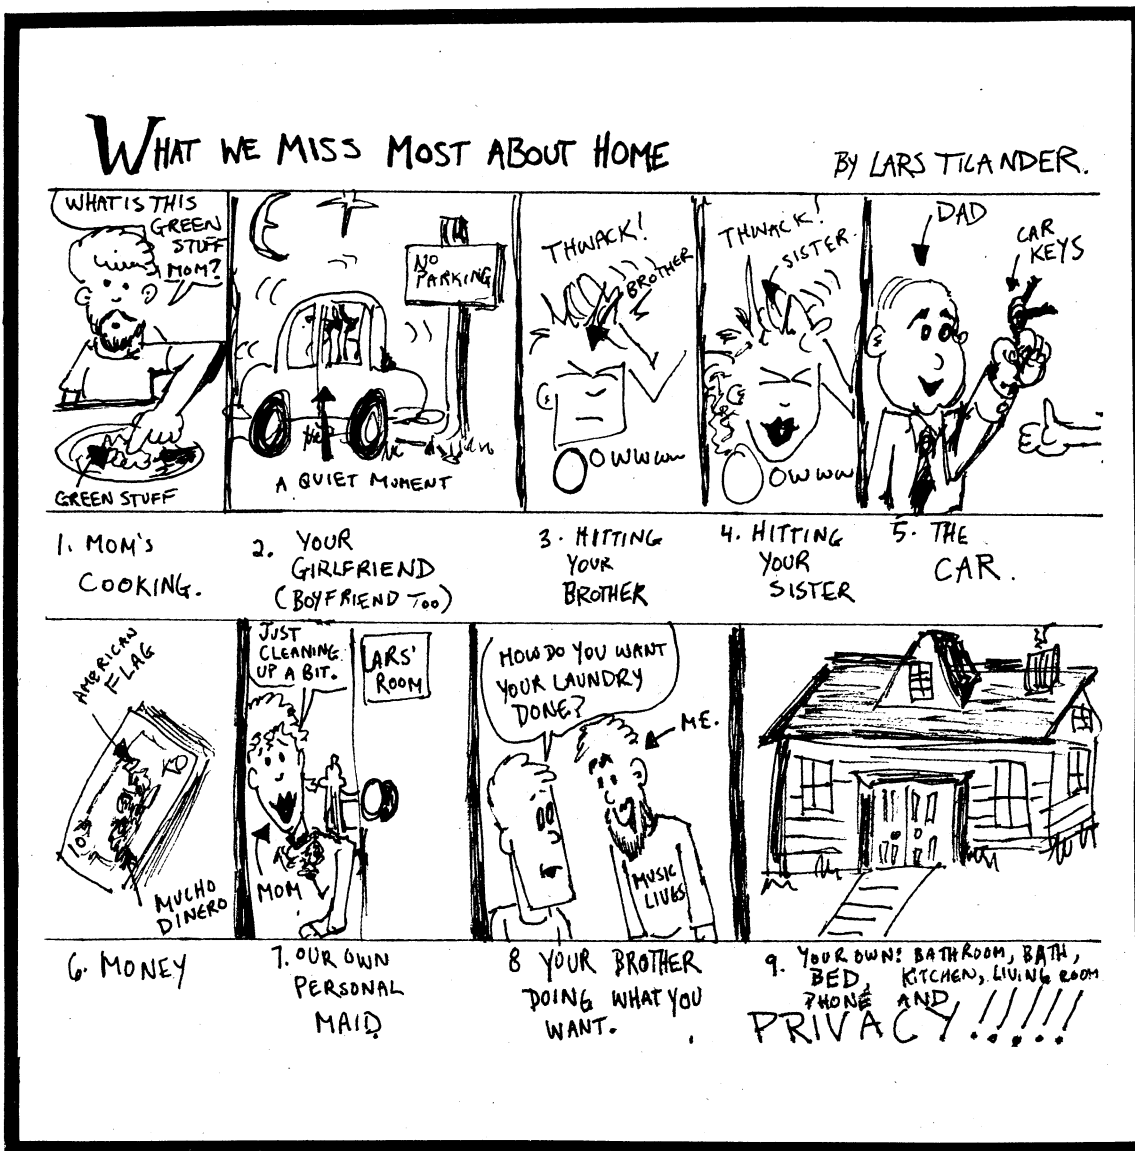 WHAT WE MISS MOST ABOUT HOME
BY LARS TILANDER.
WHAT IS THIS
GREEN
STUFF
MOM?
GREEN STUFF
NO
PARKING
A QUIET MOMENT
THWACK!
BROTHER
OOWWWW
THWACK!
SISTER.
OOWWW
DAD
CAR
KEYS
1. MOM'S
COOKING.
2. YOUR
GIRLFRIEND
(BOYFRIEND TOO)
3. HITTING
YOUR
BROTHER
4. HITTING
YOUR
SISTER
5. THE
CAR.
AMERICAN
FLAG
100
MUCHO
DINERO
JUST
CLEANING
UP A BIT.
LARS'
ROOM
MOM
HOW DO YOU WANT
YOUR LAUNDRY
DONE?
ME.
MUSIC
LIVES
6. MONEY
7. OUR OWN
PERSONAL
MAID
8 YOUR BROTHER
DOING WHAT YOU
WANT.
9. YOUR OWN: BATHROOM, BATH,
BED, KITCHEN, LIVING ROOM
PHONE AND
PRIVACY!!!!!!